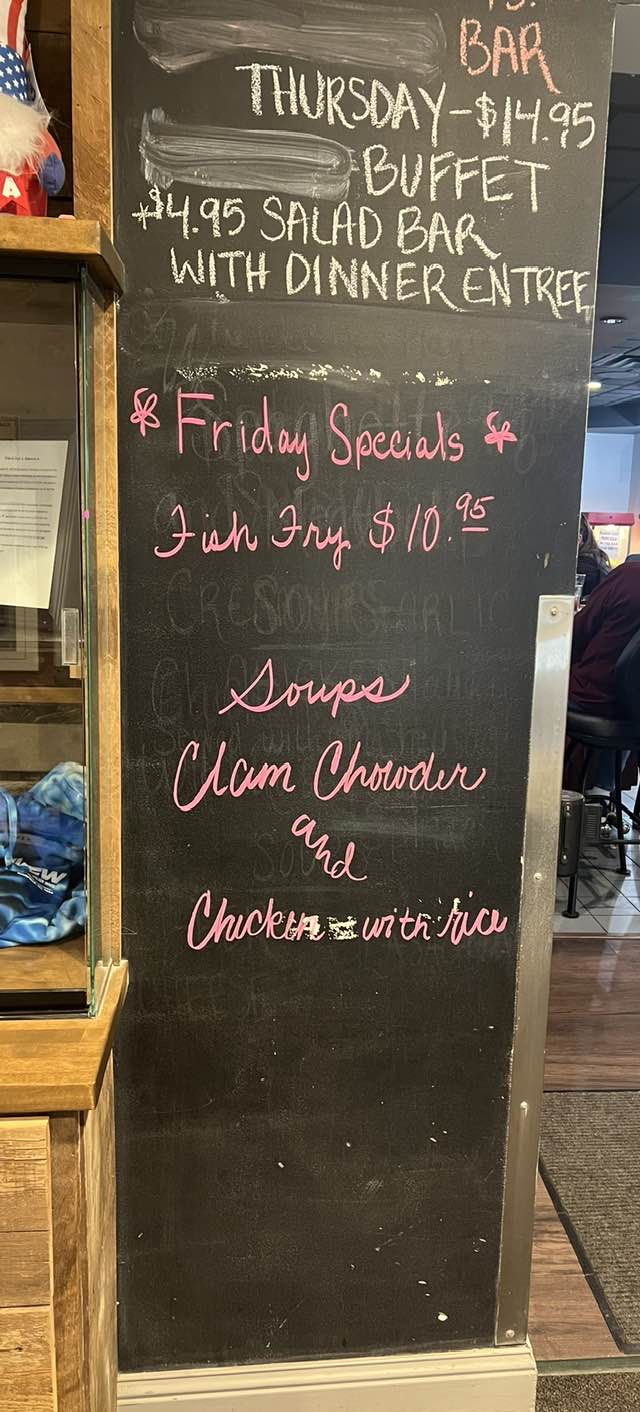 BAR
THURSDAY-$14.95
BUFFET
+$4.95 SALAD BAR
WITH DINNER ENTREE
Friday Specials
Fish Fry $10.95
Soups
Clam Chowder
and
Chicken with rice
A